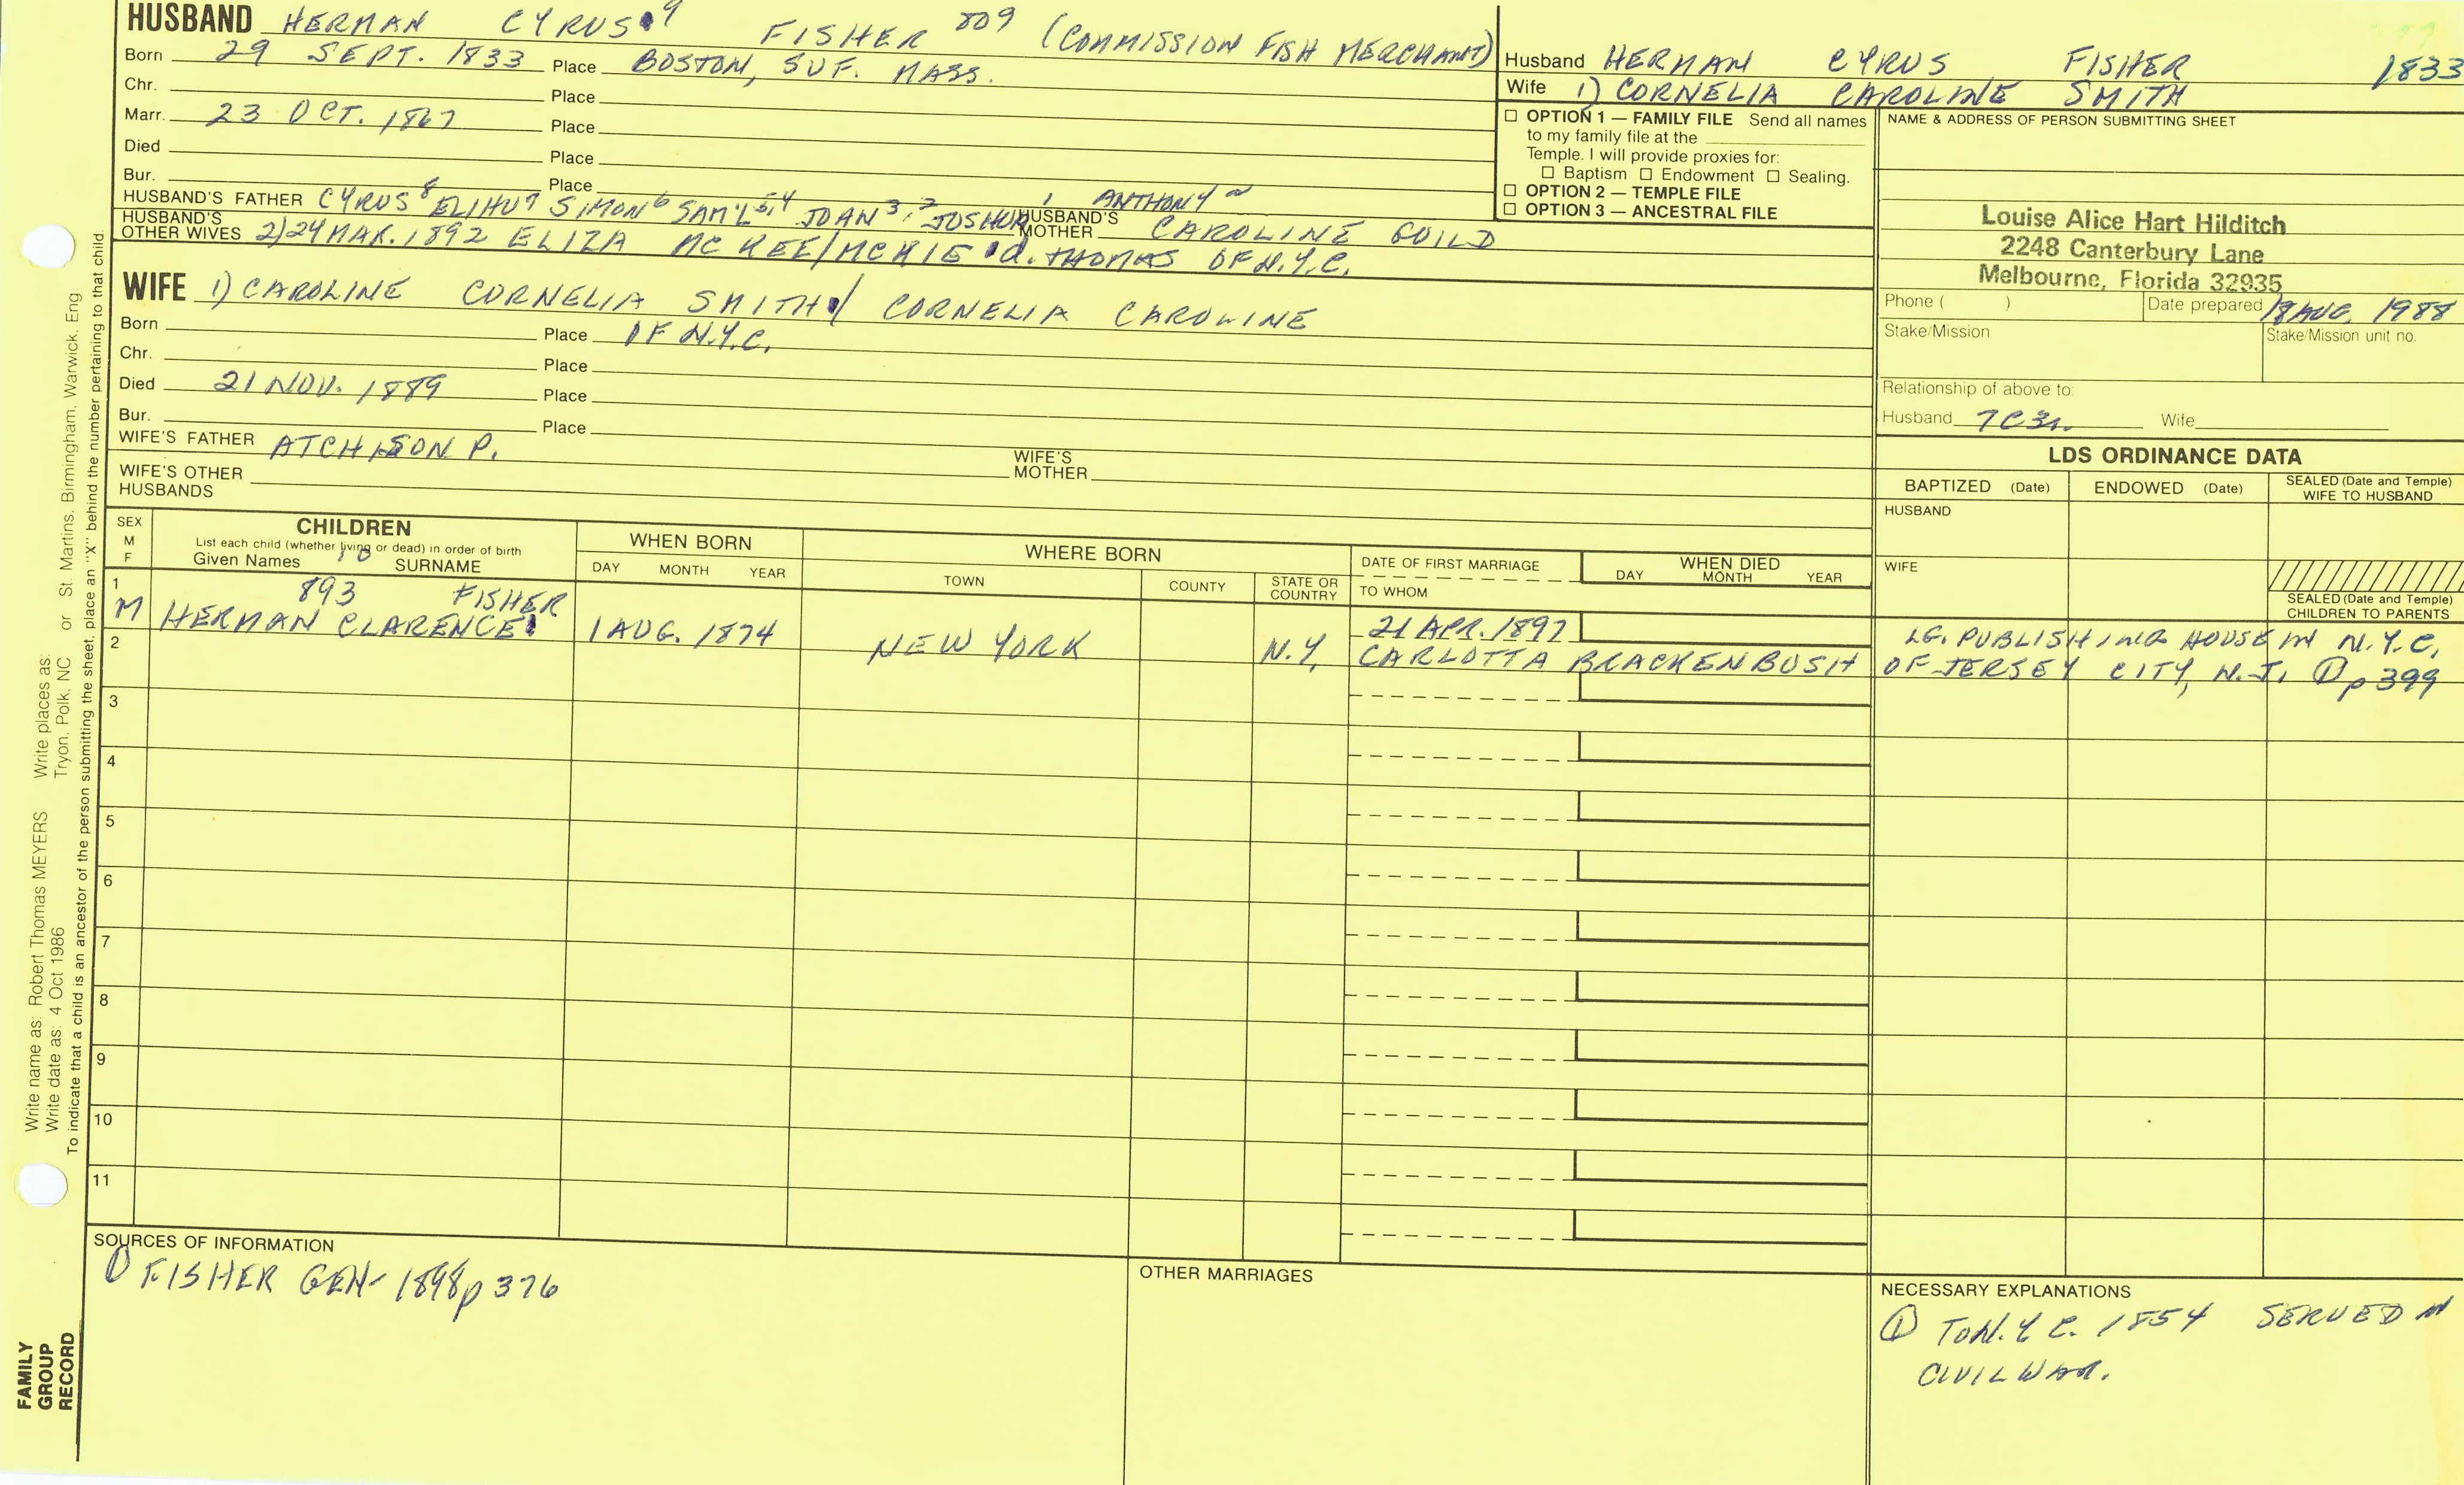 HUSBAND HERMAN CYRUS 9 FISHER 809 (COMMISSION FISH MERCHANT)
Born 29 SEPT. 1833 Place BOSTON, SUF. MASS.
Chr. Place
Marr. 23 OCT. 1867 Place
Died Place
Bur. Place
HUSBAND'S FATHER CYRUS 8 ELIHU 7 SIMON 6 SAM'L 5,4 JOAN 3, 2 JOSHUA 1 ANTHONY
HUSBAND'S MOTHER CAROLINE GUILD
HUSBAND'S OTHER WIVES 2) 24 MAR. 1892 ELIZA MC KEE/MCKIE d. THOMAS OF N.Y.C.
WIFE 1) CAROLINE CORNELIA SMITH / CORNELIA CAROLINE
Born Place OF N.Y.C.
Chr. Place
Died 21 NOV. 1889 Place
Bur. Place
WIFE'S FATHER ATCHISON P. WIFE'S MOTHER
WIFE'S OTHER HUSBANDS
Husband HERMAN CYRUS FISHER 1833
Wife 1) CORNELIA CAROLINE SMITH
☐ OPTION 1 — FAMILY FILE Send all names
to my family file at the
Temple. I will provide proxies for:
☐ Baptism ☐ Endowment ☐ Sealing.
☐ OPTION 2 — TEMPLE FILE
☐ OPTION 3 — ANCESTRAL FILE
NAME & ADDRESS OF PERSON SUBMITTING SHEET
Louise Alice Hart Hilditch
2248 Canterbury Lane
Melbourne, Florida 32935
Phone ( ) Date prepared 18 AUG. 1988
Stake/Mission Stake/Mission unit no.
Relationship of above to:
Husband 7C3r. Wife
LDS ORDINANCE DATA
BAPTIZED (Date) ENDOWED (Date) SEALED (Date and Temple) WIFE TO HUSBAND
HUSBAND
WIFE
SEALED (Date and Temple)
CHILDREN TO PARENTS
SEX M F
CHILDREN
List each child (whether living or dead) in order of birth
Given Names 10 SURNAME
WHEN BORN
DAY MONTH YEAR
WHERE BORN
TOWN COUNTY STATE OR COUNTRY
DATE OF FIRST MARRIAGE
TO WHOM
WHEN DIED
DAY MONTH YEAR
1 893 FISHER
M HERMAN CLARENCE 1 AUG. 1874 NEW YORK N.Y. 21 APR. 1897
CARLOTTA BRACKENBUSH
LG. PUBLISHING HOUSE IN N.Y.C,
OF JERSEY CITY, N.J. ① p 399
2
3
4
5
6
7
8
9
10
11
SOURCES OF INFORMATION
① FISHER GEN- 1898 p 376
OTHER MARRIAGES
NECESSARY EXPLANATIONS
① To N.Y C. 1854 SERVED IN
CIVIL WAR.
Write name as: Robert Thomas MEYERS Write places as: St. Martins, Birmingham, Warwick, Eng
Write date as: 4 Oct 1986 Tryon, Polk, NC or
To indicate that a child is an ancestor of the person submitting the sheet, place an "X" behind the number pertaining to that child.
FAMILY
GROUP
RECORD